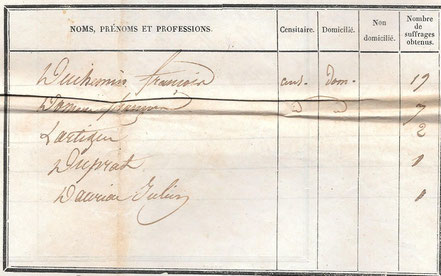 NOMS, PRÉNOMS ET PROFESSIONS. Censitaire. Domicilié. Non domicilié. Nombre de suffrages obtenus.
Duchemin françois cens. dom. 19
D D 7
Lartigue 2
Duprat 1
1